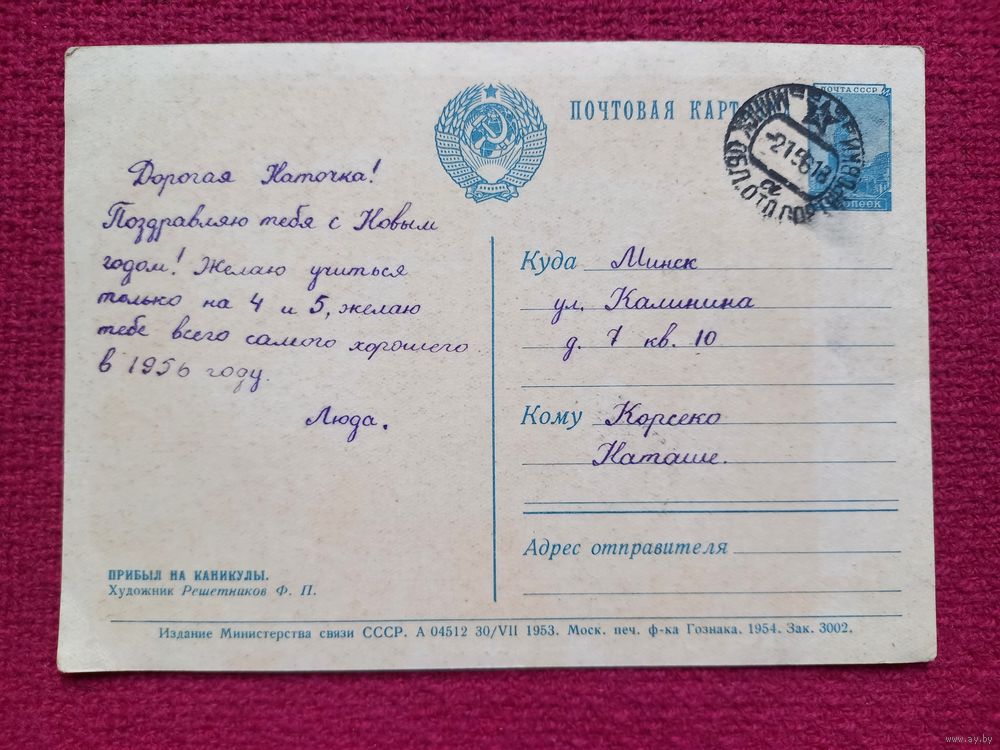 ПОЧТОВАЯ КАРТ
ПОЧТА СССР
-2156181
а
Дорогая Наточка!
Поздравляю тебя с Новым
годом! Желаю учиться
только на 4 и 5, желаю
тебе всего самого хорошего
в 1956 году.
Люда.
Куда Минск
ул. Калинина
д. 7 кв. 10
Кому Корсеко
Наташе.
Адрес отправителя
ПРИБЫЛ НА КАНИКУЛЫ.
Художник Решетников Ф. П.
Издание Министерства связи СССР. А 04512 30/VII 1953. Моск. печ. ф-ка Гознака. 1954. Зак. 3002.
www.ay.by